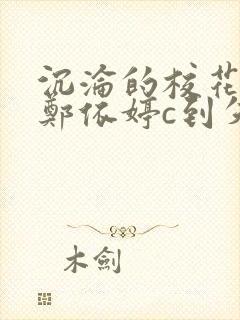 沉淪的校花
鄭依婷c到欠
木劍